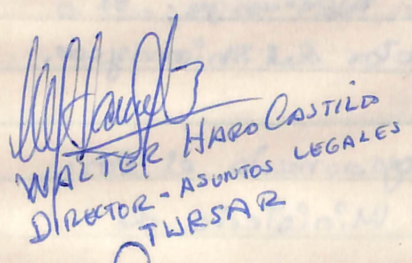 WALTER HARO CASTILLO
DIRECTOR - ASUNTOS LEGALES
TWRSAR